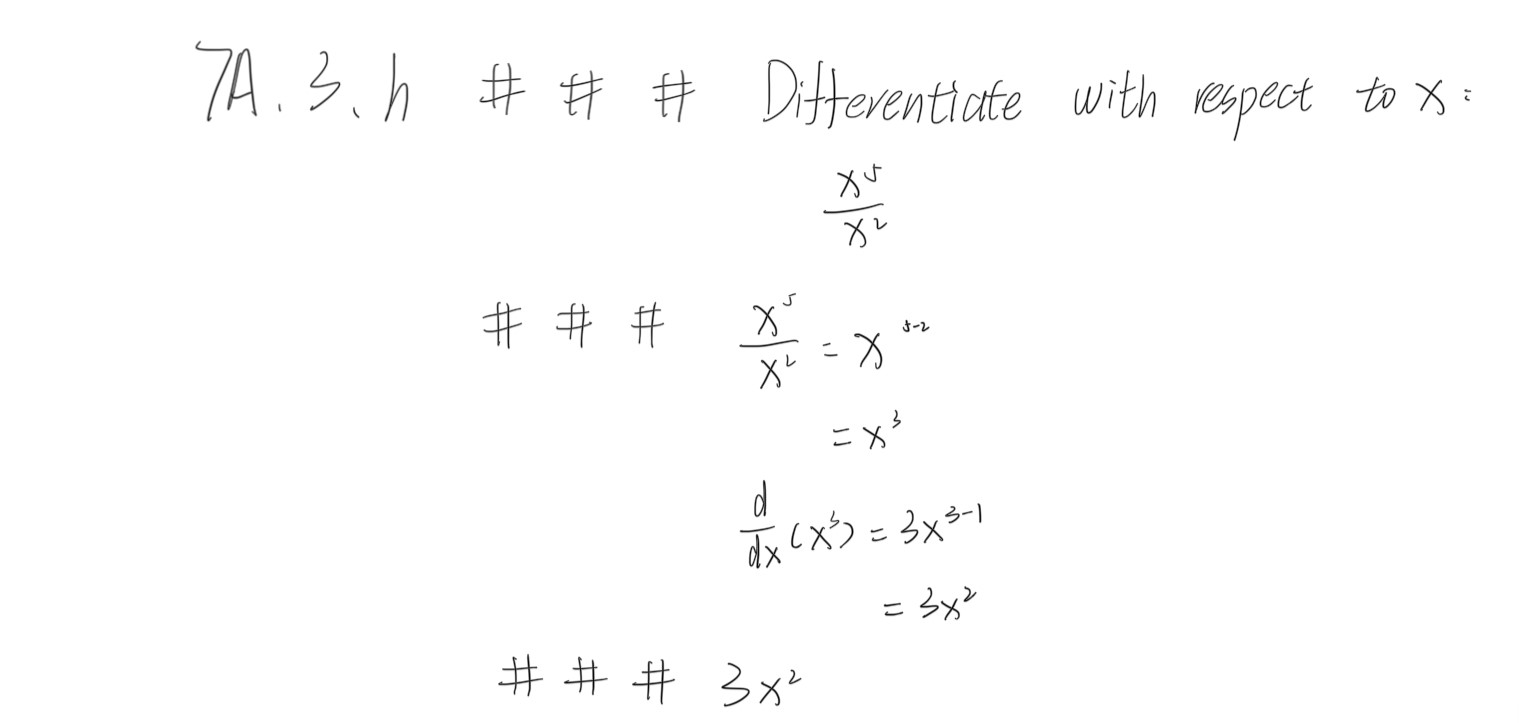 7A.3.h # # # Differentiate with respect to x:
x⁵/x²
# # # x⁵/x² = x⁵⁻²
= x³
d/dx (x³) = 3x³⁻¹
= 3x²
# # # 3x²